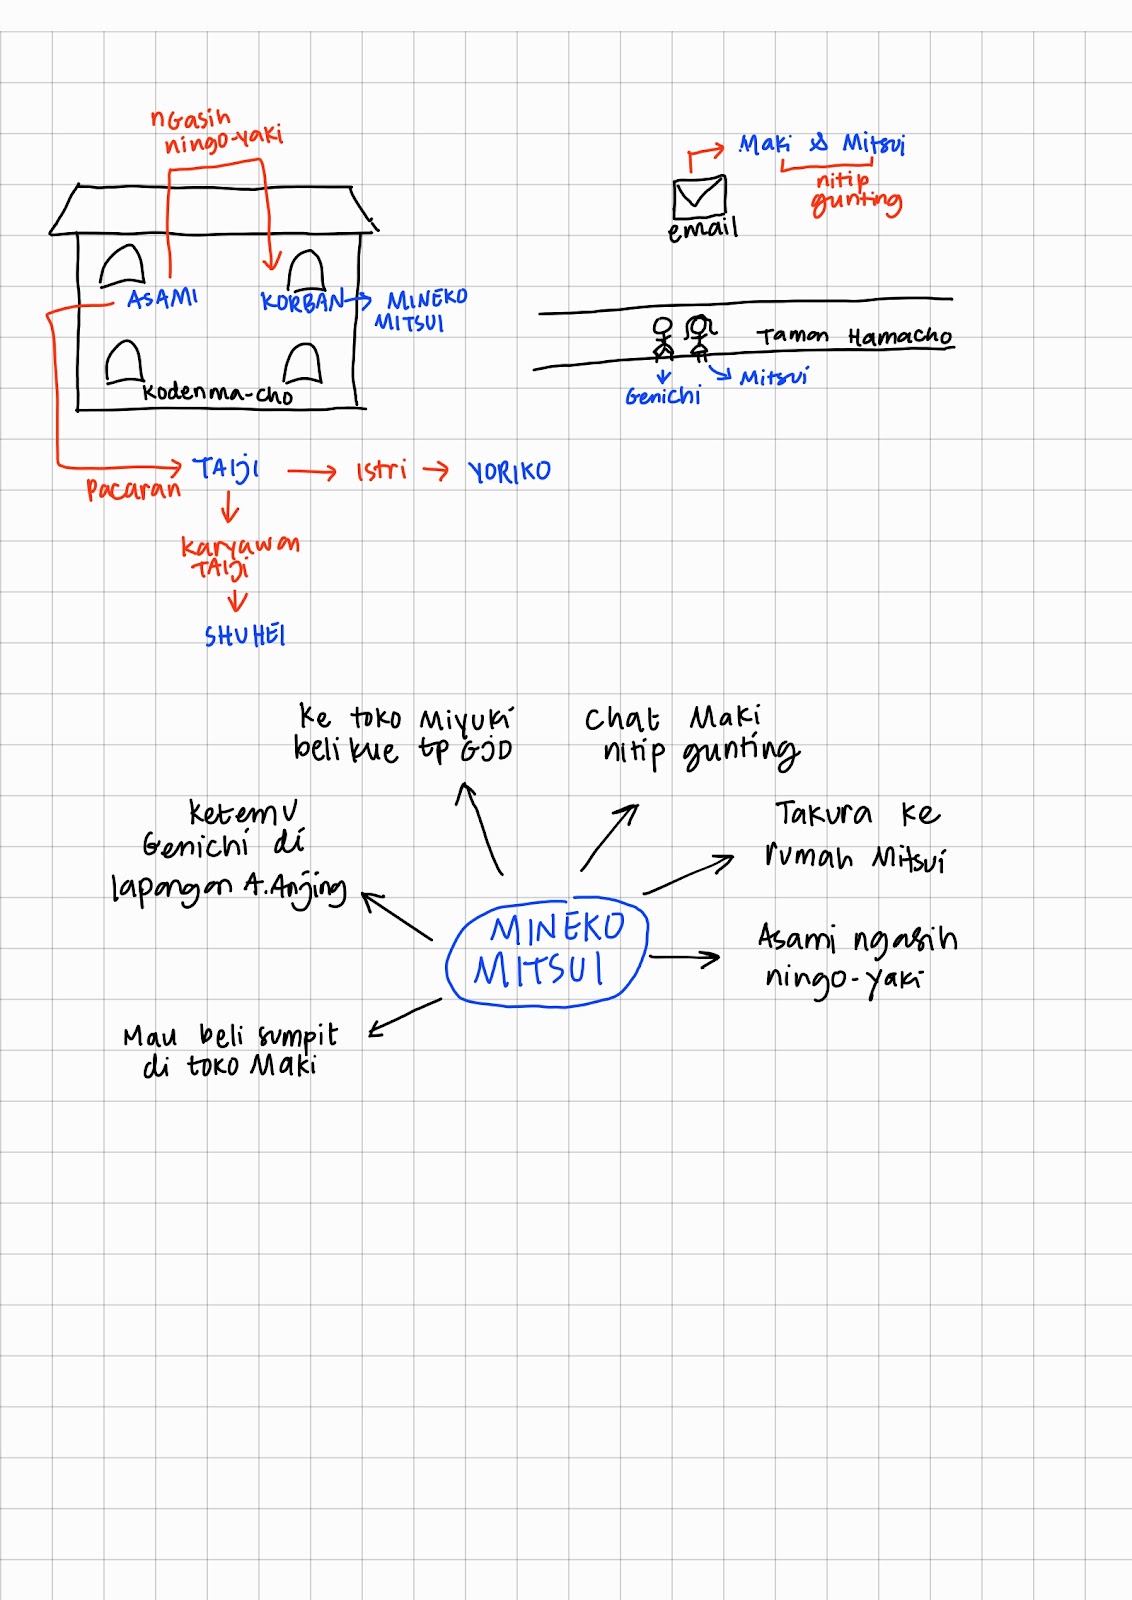 nGasih
ningo-yaki
ASAMI
KORBAN
MINEKO
MITSUI
Kodenma-cho
Pacaran
TAIJI
Istri
YORIKO
Karyawan
TAIJI
SHUHEI
email
Maki & Mitsui
nitip
gunting
Taman Hamacho
Genichi
Mitsui
Ke toko Miyuki
beli kue tp GJD
Chat Maki
nitip gunting
Ketemu
Genichi di
lapangan A.Anjing
Takura ke
rumah Mitsui
MINEKO
MITSUI
Asami ngasih
ningo-yaki
Mau beli sumpit
di toko Maki